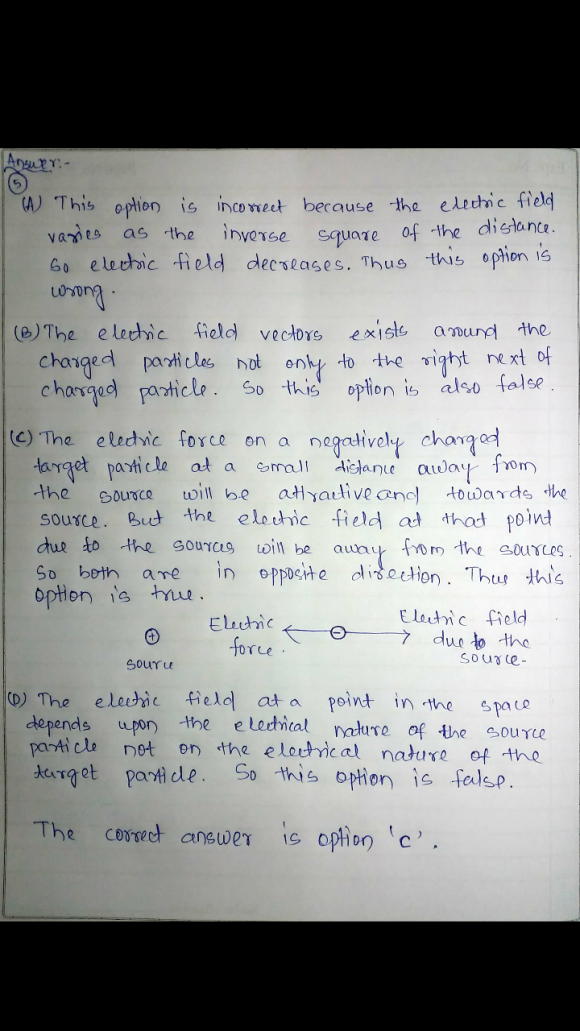 Answer:-
5
(A) This option is incorrect because the electric field
varies as the inverse square of the distance.
So electric field decreases. Thus this option is
wrong.
(B) The electric field vectors exists around the
charged particles not only to the right next of
charged particle. So this option is also false.
(C) The electric force on a negatively charged
target particle at a small distance away from
the source will be attractive and towards the
source. But the electric field at that point
due to the sources will be away from the sources.
So both are in opposite direction. Thus this
option is true.
+
source
Electric
force.
-
Electric field
due to the
source-
(D) The electric field at a point in the space
depends upon the electrical nature of the source
particle not on the electrical nature of the
target particle. So this option is false.
The correct answer is option 'c'.